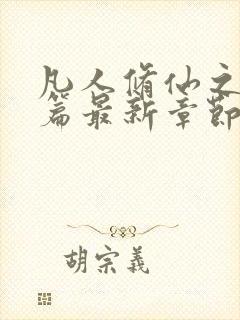 凡人脩仙之
篇最新章節
胡宗義